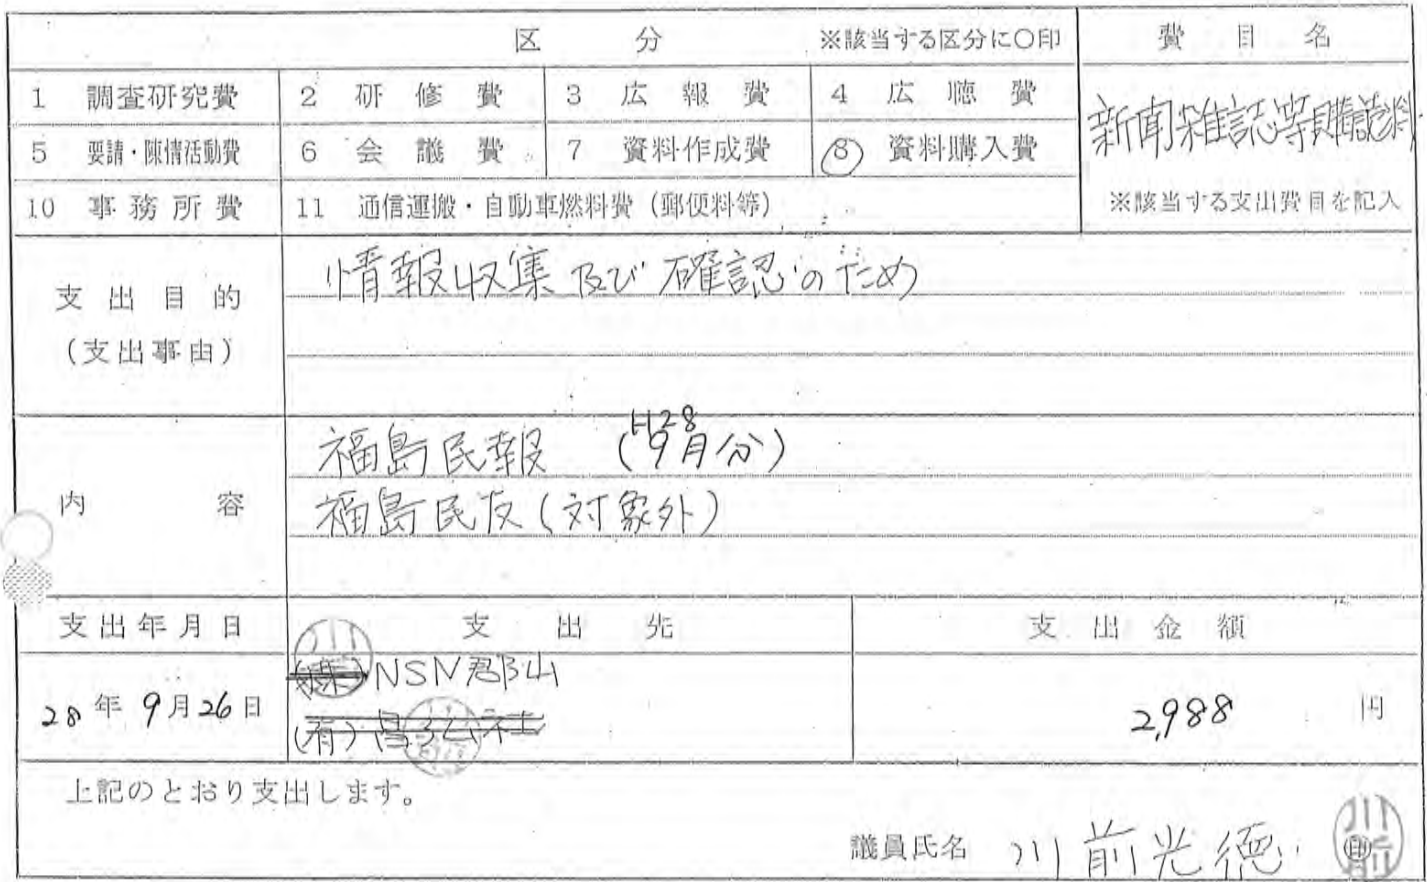 区 分 ※該当する区分に〇印 費 目 名
1 調査研究費 2 研 修 費 3 広 報 費 4 広 聴 費
新聞雑誌等購読料
5 要請・陳情活動費 6 会 議 費 7 資料作成費 8 資料購入費
10 事 務 所 費 11 通信運搬・自動車燃料費（郵便料等） ※該当する支出費目を記入
支 出 目 的
（支出事由）
情報収集及び確認のため
内 容
H28
福島民報 （9月分）
福島民友（対象外）
支出年月日 支 出 先 支 出 金 額
28年 9月26日
NSN郡山
（有）
2,988 円
上記のとおり支出します。
議員氏名 川前光徳 印
川前